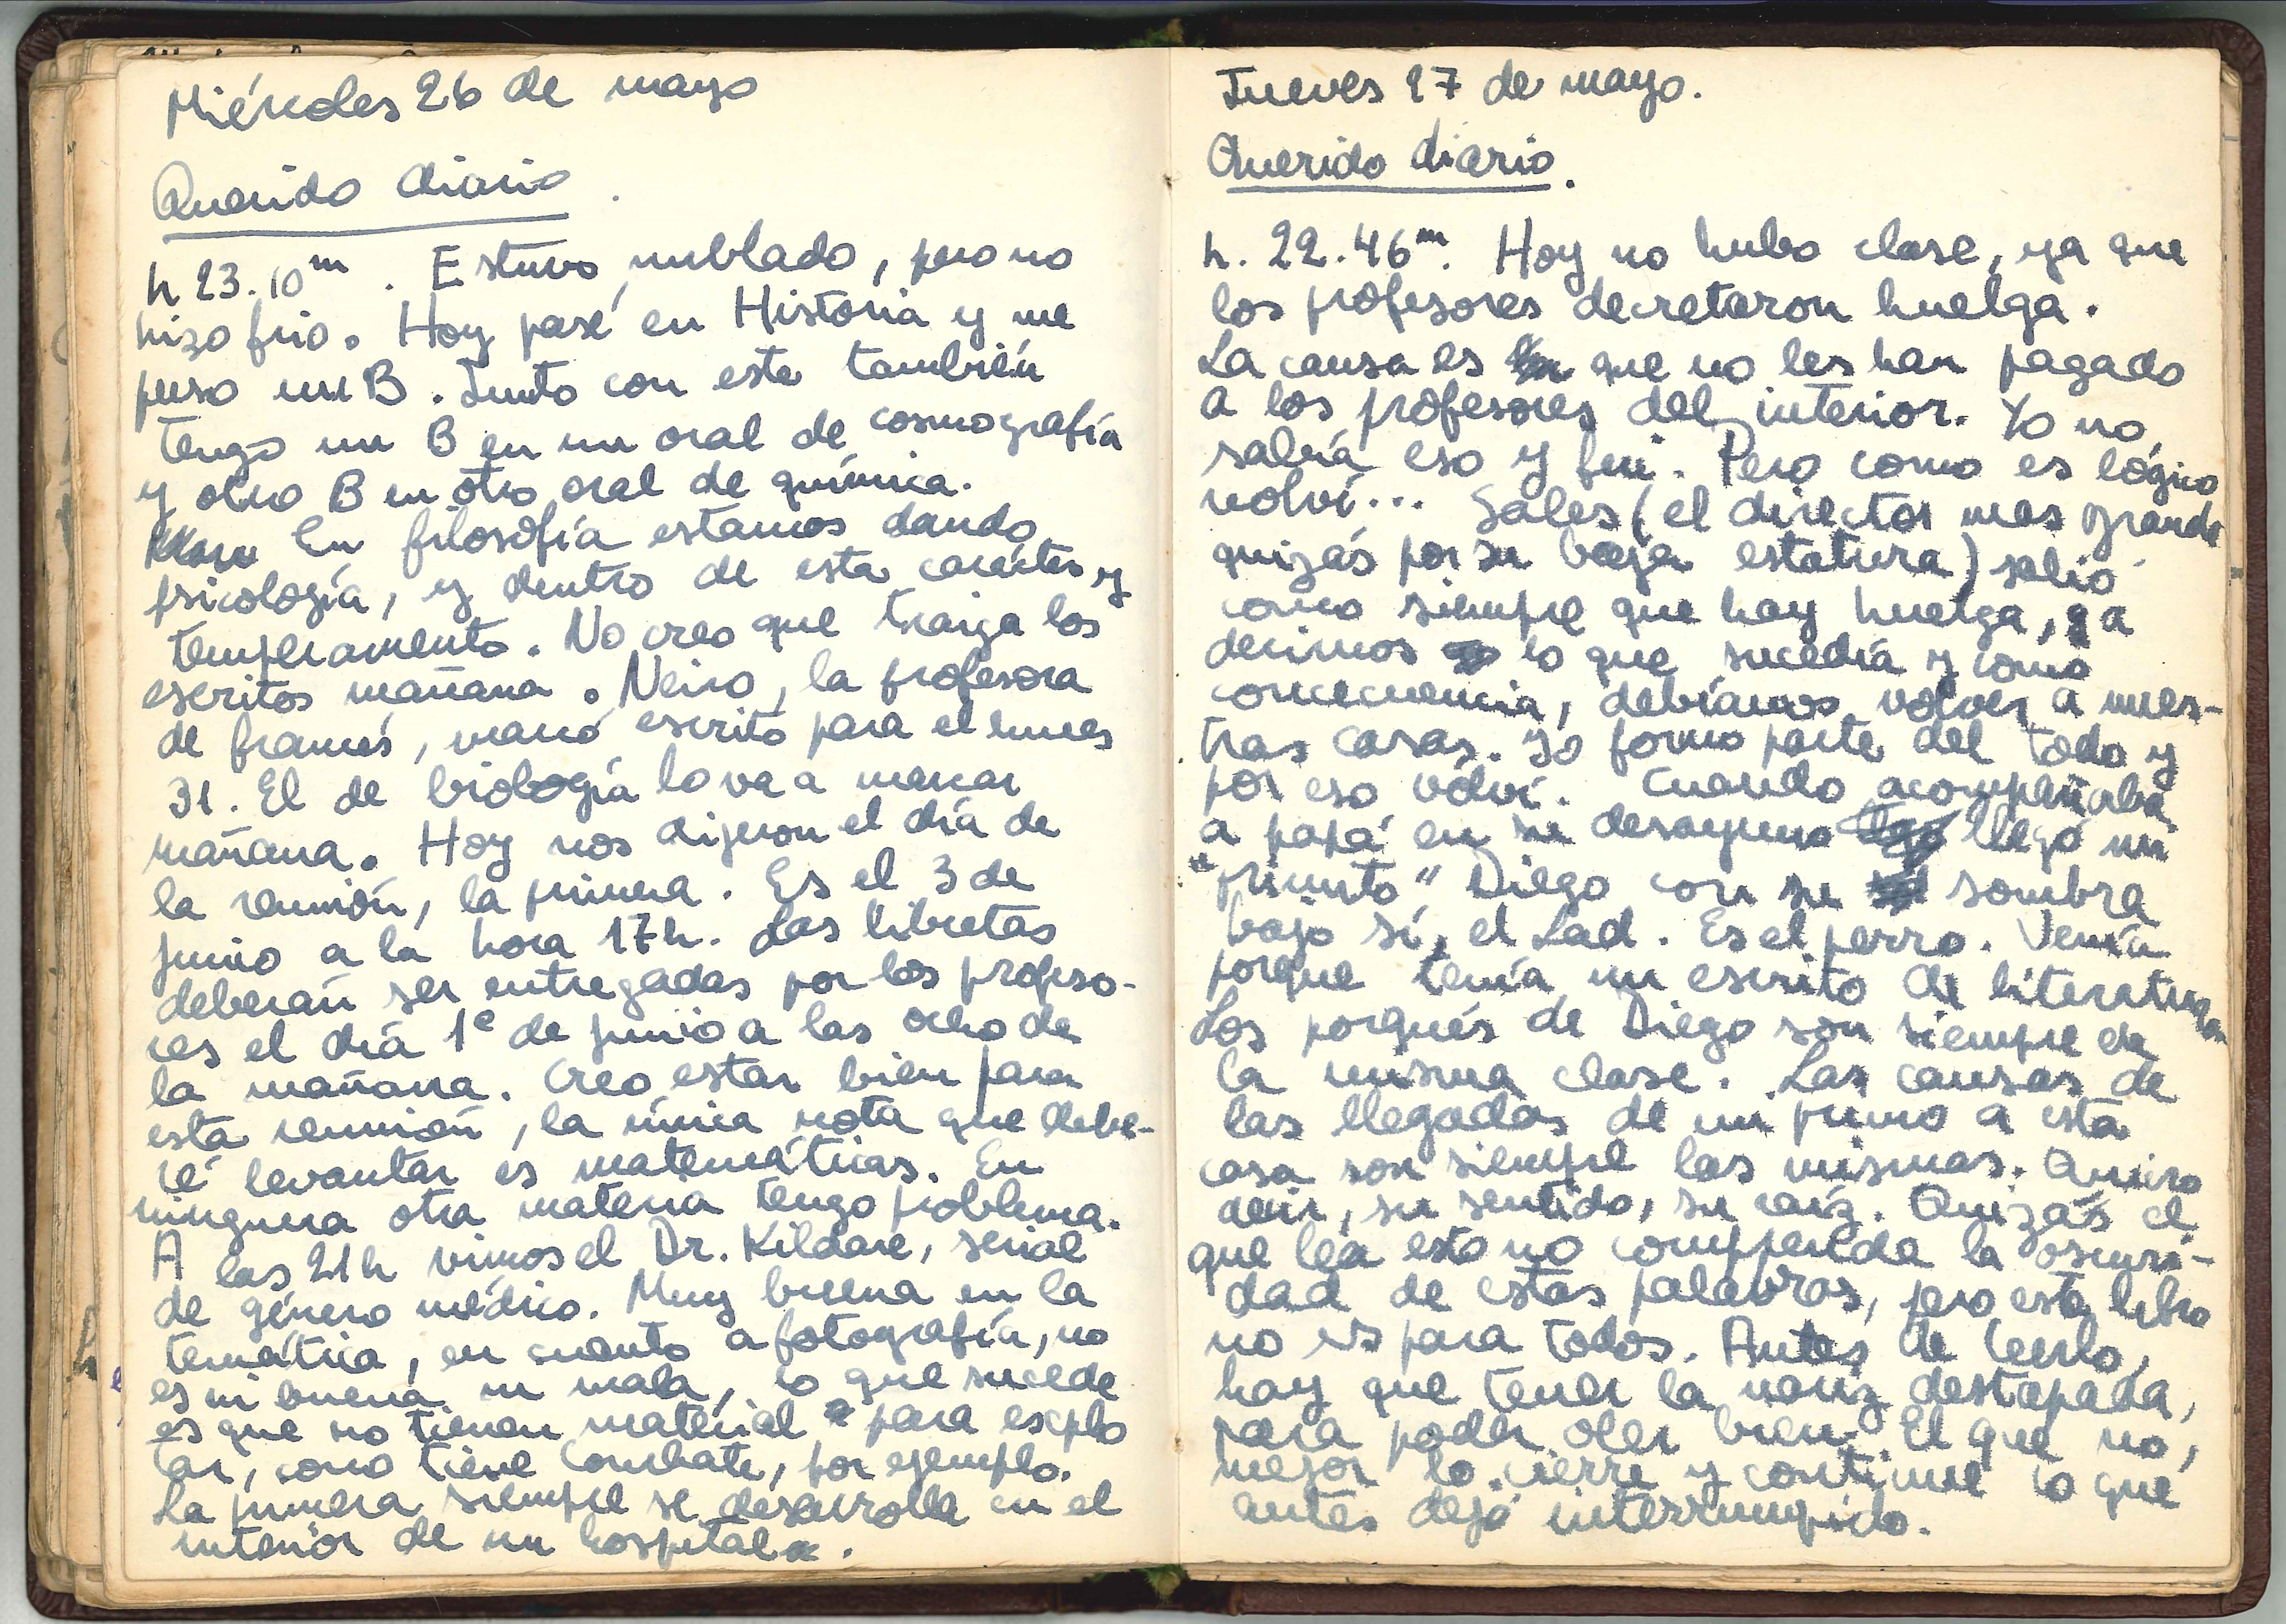 Miércoles 26 de mayo
Querido diario.
h 23.10m. Estuvo nublado, pero no
hizo frio. Hoy pasé en Historia y me
puso un B. Junto con este también
tengo un B en un oral de cosmografía
y otro B en otro oral de química.
En filosofía estamos dando
psicología, y dentro de esta carácter y
temperamento. No creo que traiga los
escritos mañana. Neiro, la profesora
de francés, marcó escrito para el lunes
31. El de biología lo va a marcar
mañana. Hoy nos dijeron el día de
la reunión, la primera. Es el 3 de
junio a la hora 17h. Las libretas
deberán ser entregadas por los profeso-
res el día 1º de junio a las ocho de
la mañana. Creo estar bien para
esta reunión, la única nota que debe-
ré levantar es matemáticas. En
ninguna otra materia tengo problema.
A las 21h vimos el Dr. Kildare, serial
de género médico. Muy buena en la
temática, en cuanto a fotografía, no
es ni buena ni mala, lo que sucede
es que no tienen material para explo
tar, como tiene Combate, por ejemplo.
La primera siempre se desarrolla en el
interior de un hospital.
Jueves 27 de mayo.
Querido diario.
h. 22.46m. Hoy no hubo clase, ya que
los profesores decretaron huelga.
La causa es que no les han pagado
a los profesores del interior. Yo no
sabía eso y fui. Pero como es lógico
volví... Sales (el director mas grande
quizás por su baja estatura) salió
como siempre que hay huelga, a
decirnos lo que sucedía y como
concecuencia, debíamos volver a nues-
tras casas. Yo formo parte del todo y
por eso volví. Cuando acompañaba
a papá en su desayuno llegó mi
"primito" Diego con su sombra
bajo sí, el Lad. Es el perro. Venía
porque tenía un escrito de literatura.
Los porqués de Diego son siempre de
la misma clase. Las causas de
las llegadas de mi primo a esta
casa son siempre las mismas. Quiero
decir, su sentido, su raíz. Quizás el
que lea esto no comprenda la oscuri-
dad de estas palabras, pero este libro
no es para todos. Antes de leerlo,
hay que tener la nariz destapada,
para poder oler bien. El que no,
mejor lo cierre y continue lo que
antes dejó interrumpido.